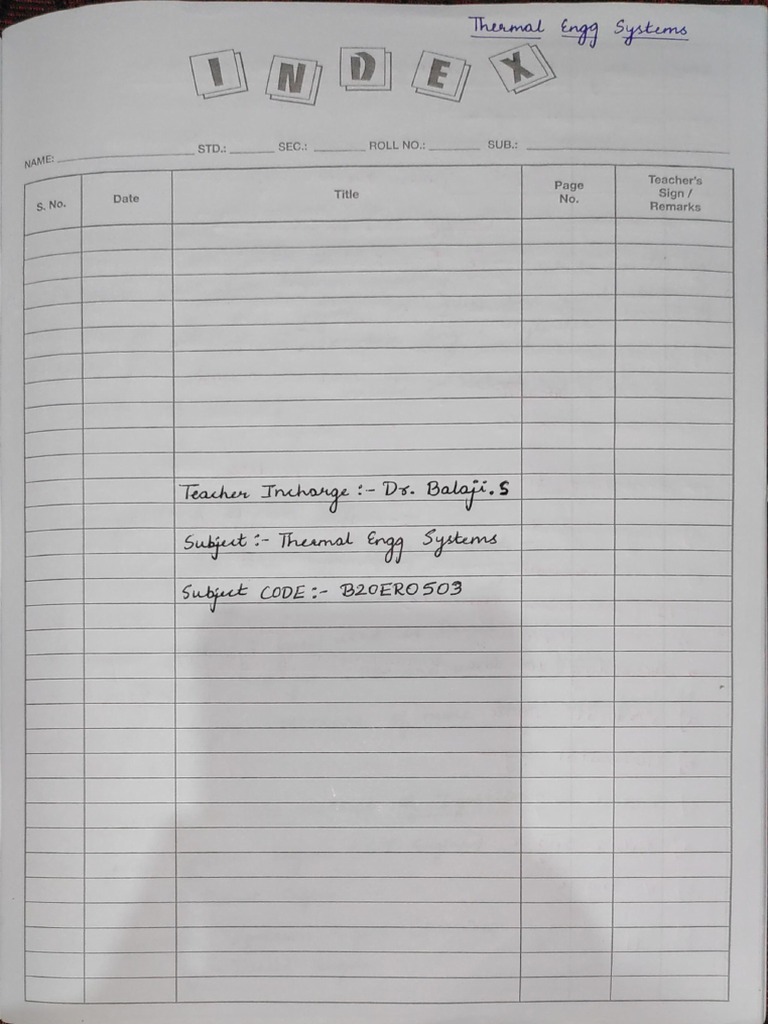 Thermal Engg Systems
INDEX
NAME: STD.: SEC.: ROLL NO.: SUB.:
S. No. Date Title Page No. Teacher's Sign / Remarks
Teacher Incharge :- Dr. Balaji. S
Subject :- Thermal Engg Systems
Subject CODE :- B20ER0503